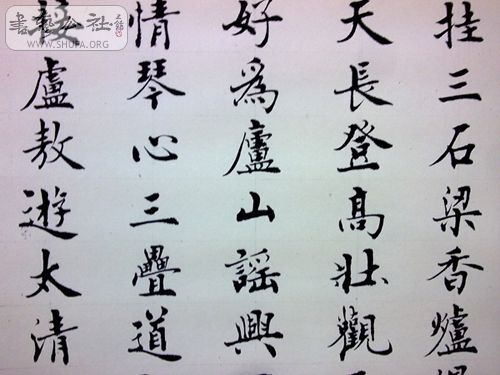 挂三石梁香爐
天長登高壯觀
好爲廬山謠興
情琴心三疊道
接盧敖遊太清
書藝公社
WWW.SHUFA.ORG